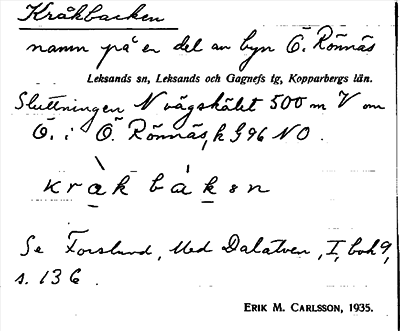 Kråkbacken
namn på en del av byn Ö. Rönnäs
Leksands sn, Leksands och Gagnefs tg, Kopparbergs län.
Sluttningen N vägskälet 500 m V om
Ö. i Ö. Rönnäs, k 996 NO.
kråk båkǝn
Se Forslund, Med Dalälven, I, bok 9,
s. 136.
ERIK M. CARLSSON, 1935.